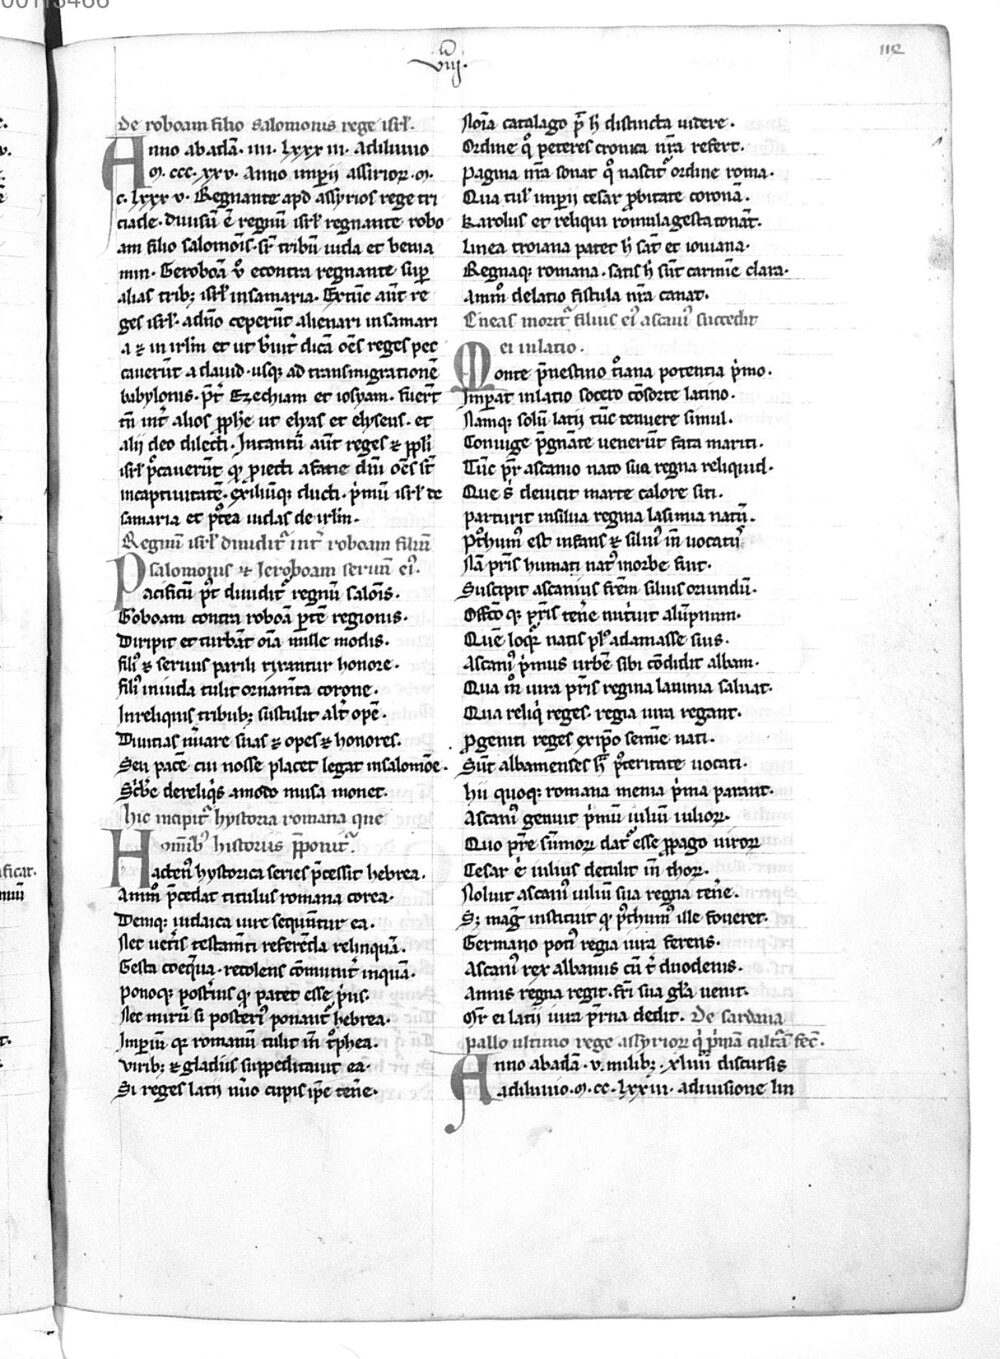 VIIIJ.
112
De roboam filio salomonis rege isrł.
Anno ab adā. IIII. lxxx III. A diluuio
M. ccc. xxv. Anno impii assirioꝝ. M.
c. lxxx v. Regnante apđ assyrios rege tri
ciade. diuisū ē regnū isrł regnante robo
am filio salomōis. sr̄ tribū iuda et benia
min. Geroboā v̊ econtra regnante sup̄
alias tribꝫ isrł in samaria. Ex tūc aūt re
ges isrł. a dn̄o ceperūt alienari in samari
a ⁊ in irłm et ut b̾uit̾ dicā om̄s reges pec
cauerūt a dauid. usqꝫ ad transmigrationē
babylonis. p̄t̾ Ezechiam et iosyam. fuerūt
tn̄ int̾ alios ꝓphe ut elyas et elyseus. et
alij deo dilecti. In tantū aūt reges ⁊ ppłi
isrł p̄cauerūt qꝫ ꝓiecti a facie dn̄i om̄s st̄
in captiuitatē. exiliūqꝫ ducti. p̾mū isrł de
samaria et p̾tea iudas de irłm.
Regnū isrł diuidit̾ int̾ roboam filiū
salomonis ⁊ Ieroboam seruū ei᾿.
Pacificū pt̾ diuidit̾ regnū salōis.
Goboam contra roboā p̄te regionis.
Diripit et turbāt oīa mille modis.
fili᾿ ⁊ seruus parili rixantur honore.
fili᾿ in iuda tulit ornam̄ta corone.
In reliquis tribubꝫ sustulit alt̾ opē.
Diuitias iūare suas ⁊ opes ⁊ honores.
Seu pacē cui nosse placet legat in salomōe.
Sc̾be de reliq̾s amodo musa monet.
hic incipit̾ hystoria romana que
omībꝫ historiis p̄ponit̾.
Hacten᾿ hystorica series p̄cessit hebrea.
A mō p̄cedat titulus romana corea.
Demqꝫ iudaica iure sequūtur ea.
Nec uet̾is testam̄ti referēda relinquā.
Gesta coequa. recolens cōmunit̾ inquā.
ponoqꝫ post̾ius qꝫ patet esse p̾us.
Nec mirū si poster᾿ ponaūt̾ hebrea.
Imperiū qꝫ romanū tulit iīi t̾phea.
Viribꝫ ⁊ gladiis suppeditauit ea.
Si reges latii nūo cupis ipē tene̾.
Noīa catalago p̄ h̾ distincta uidere.
Ordine q᾿ peteres cronica nr̄a refert.
pagina nr̄a sonat q᾿ nascit̾ ordine roma.
Qua tul̾ impii cesar ꝓbitate coronā.
karolus et reliqui romula gesta tonāt.
linea troiana patet h̾ sat̄ et iouiana.
Regnaqꝫ romana. satis h̾ sūt carmīe clara.
A mō delatio fistula nr̄a canat.
Eneas morit̾ filius ei᾿ ascani᾿ succedit
ei in latio.
Monte p̄nestino t̾iana potentia p̾mo.
Imperat in latio socero cōsorte latino.
Namqꝫ solū latii tūc tenuere simul.
Coniuge p̄gnāte uenerūt fata mariti.
Tūc pr̄ ascanio nato sua regna reliquid.
Que s̾ deuicit marte calore siti.
parturit in silua regina lasimia natū.
p̾thum᾿ est infans ⁊ silui᾿ iīi uocati᾿.
Nā pr̄is humati nat᾿ morbe fuit.
Suscipit ascanius fr̄em siluis oriundū.
Offic̄o qꝫ pr̄is tene̾ nut̾uit alūpnum.
Quē loqr̄ natis pł᾿ adamasse suis.
Ascani᾿ p̾mus urbē sibi cōdidit albam.
Qua m̊ iura pr̄is regina lauinia saluat.
Qua reliq̾ reges. regia iura regant.
ꝓgeniti reges ex ip̄o semīe nati.
Sūt albanenses h̾ p̾teritate uocati.
hii quoqꝫ romana menia p̾ma parant.
Ascani᾿ genuit p̾mū iuliū iulioꝝ.
Quo pr̄e sūmoꝝ dat̾ esse ꝓpago uiroꝝ
Cesar ē iulius detulit iīi thoꝝ.
Noluit ascani᾿ iuliū sua regna tene̾.
Sꝫ mag̾ instituit qꝫ p̾thum᾿ ille foueret.
Germano poti᾿ regia iura ferens.
Ascani᾿ rex albanus cū t̾ duodenis.
Annis regna regit. fr̄i sua gl̄a uenit.
Mr̄ ei latii iura p̄rna dedit. De sardana
pallo ultimo rege assyrioꝝ q̾ p̾mā cultr̄ā fec̄.
Anno ab adā. v. milibꝫ. xluiii discursis
a diluuio. M. cc. lxxiii. a diuisione lin